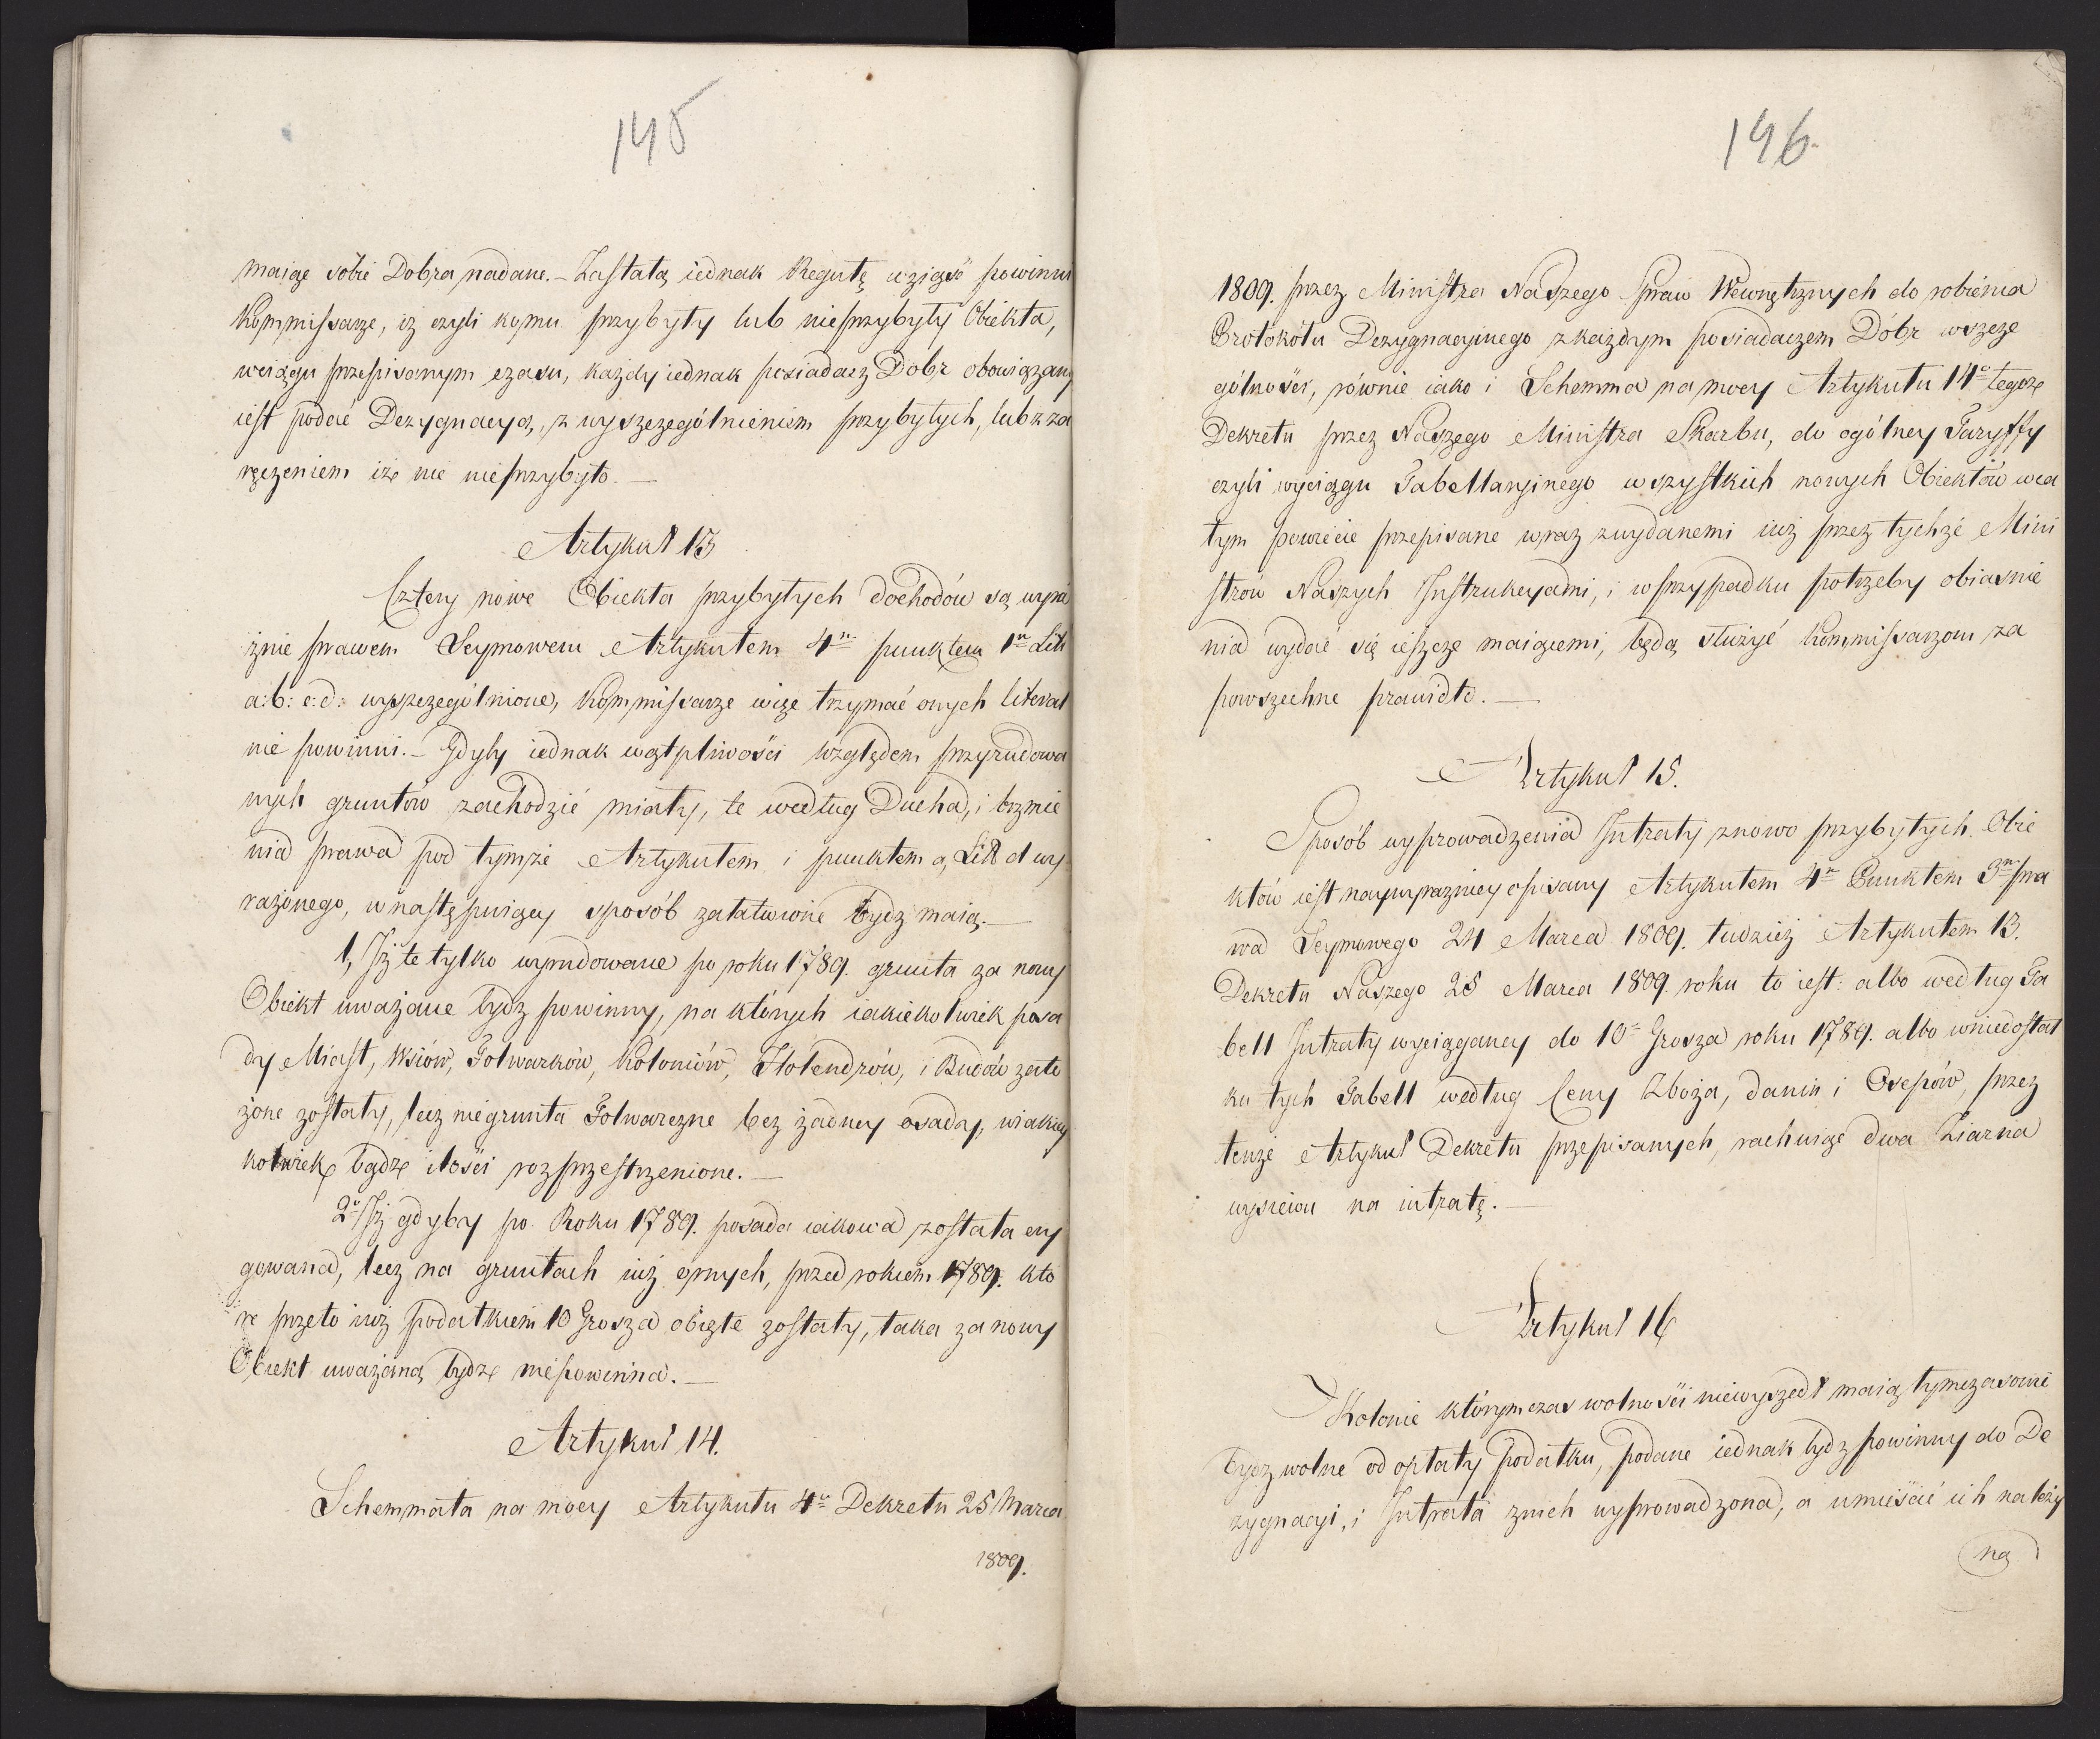 145
maiąc sobie Dobra nadane. – Zastałą iednak Regułę wziąść powinni
Kommissarze, iz czyli komu przybyły lub nieprzybyły Obiekta,
wciągu przepisanym czasu, każdy iednak posiadacz Dobr obowiązany
iest podać Dezygnacyą, z wyszczególnieniem przybyłych, lub z za
ręczeniem iże nic nieprzybyło. —
Artykuł 13
Cztery nowe Obiekta przybyłych dochodów są wyra
źnie prawem Seymowem Artykułem 4m punktem 1m Litt
a: b: c: d: wyszczególnione, Kommissarze więc trzymać onych literal
nie powinni. – Gdyby iednak wątpliwości względem przyrudowa
nych gruntów zachodzić miały, te według Ducha, i brzmie
nia prawa pod tymże Artykułem i punktem a, Litt d wy
rażonego, w następuiący sposób załatwione bydz maią. —
1, Iż te tylko wyrudowane po roku 1789. grunta za nowy
Obiekt uważane bydz powinny, na których iakiekolwiek posa
dy Miast, Wsiów, Folwarków, Koloniów, Holendrów, i Budów zało
żone zostały, lecz nie grunta Folwarczne bez żadney osady, w iakiey
kolwiek bądz ilości rozprzestrzenione. —
2o Iż gdyby po Roku 1789. posada iakowa została ery
gowana, lecz na gruntach iuż ornych, przed rokiem 1789. któ
re przeto iuż podatkiem 10 Grosza obięte zostały, taka za nowy
Obiekt uważaną bydz niepowinna. —
Artykuł 14.
Schemmata na mocy Artykułu 4o Dekretu 25 Marca
1809.
146.
1809. przez Ministra Naszego Spraw Wewnętrznych do robienia
Protokołu Dezygnacyinego z każdym posiadaczem Dóbr wszcze
gólności, równie iako i Schemma na mocy Artykułu 14o tegoż
Dekretu przez Naszego Ministra Skarbu, do ogólney Taryffy
czyli wyciągu Tabellaryinego wszystkich nowych Obiektów w ca
łym powiecie przepisane wraz z wydanemi iuż przez tychże Mini
strów Naszych Instrukcyami, i w przypadku potrzeby obiaśnie
nia wydać się ieszcze maiącemi, będą służyć Kommissarzom za
powszechne prawidło. —
Artykuł 15.
Sposób wyprowadzenia Intraty z nowo przybyłych Obie
któw iest naywyrazniey opisany Artykułem 4m Punktem 3m pra
wa Seymowego 24 Marca 1809. tudzież Artykułem 13.
Dekretu Naszego 25 Marca 1809. roku to iest: albo według Ta
bell Intraty wyciąganey do 10o Grosza roku 1789. albo w niedostat
ku tych Tabell według Ceny Zboża, danin i Osepów, przez
tenże Artykuł Dekretu przepisanych, rachuiąc dwa Ziarna
wysiewu na intratę. —
Artykuł 16
Kolonie którym czas wolności niewyszedł maią tymczasowie
bydz wolne od opłaty podatku, podane iednak bydz powinny do De
zygnacyi, i Intrata znich wyprowadzona, a umieścić ich należy
na